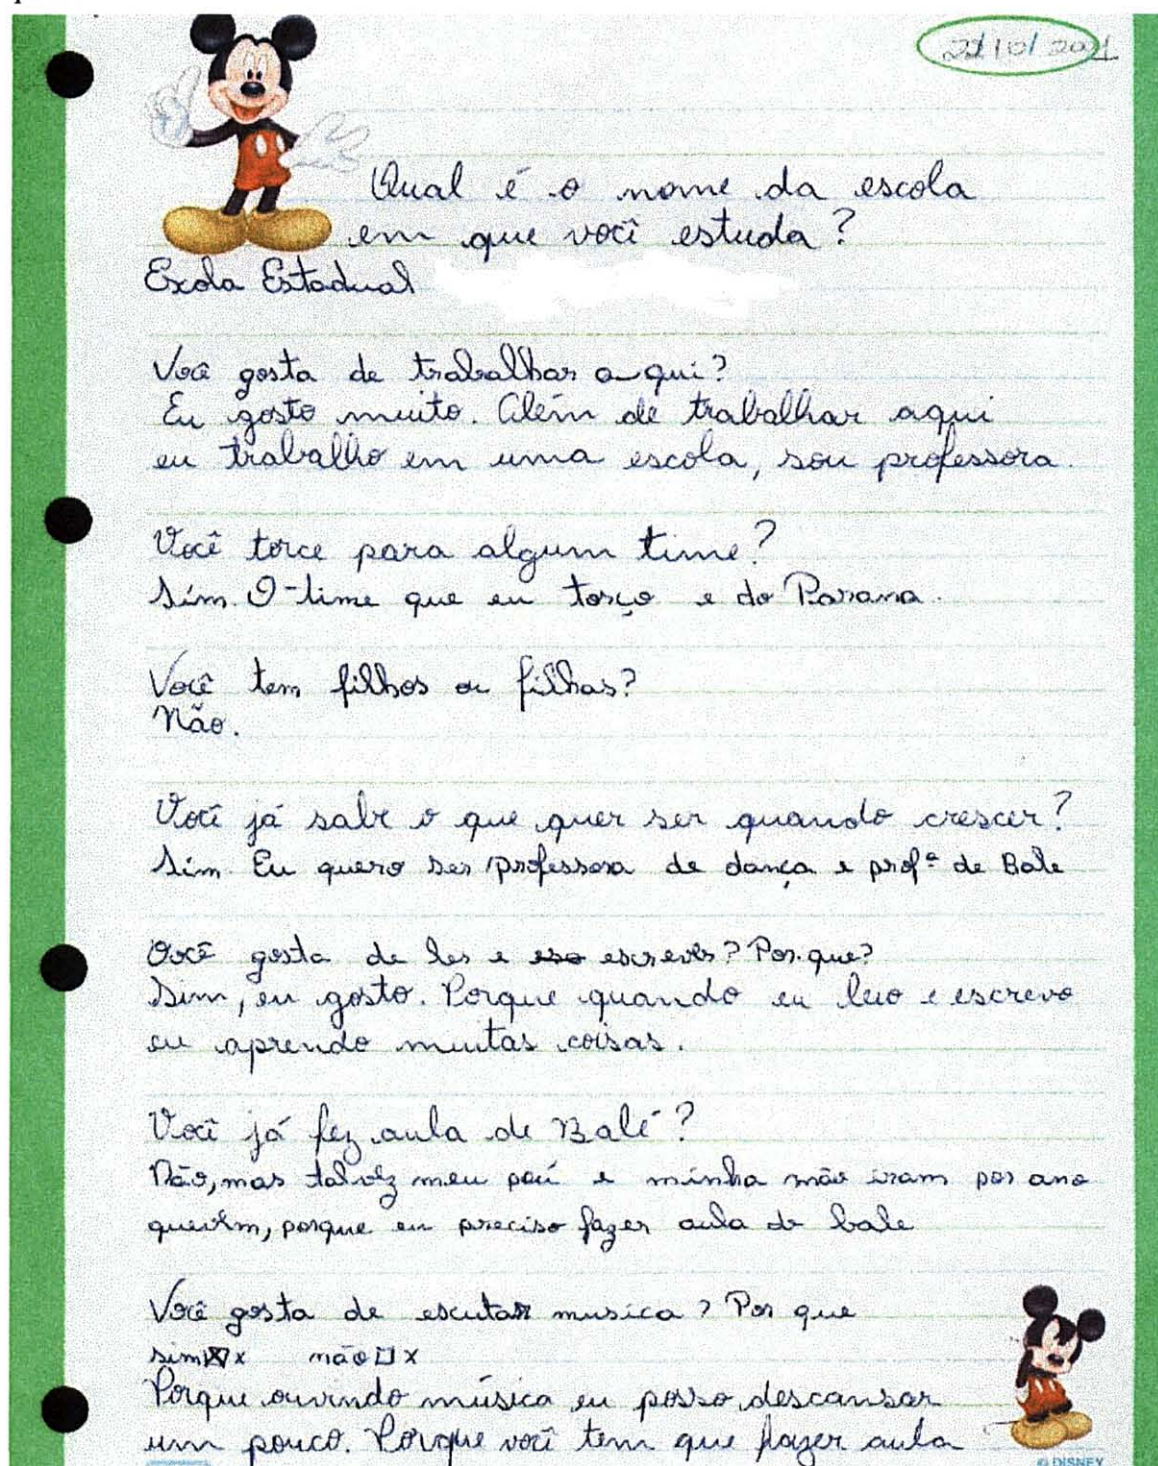 22/10/2021
Qual é o nome da escola
em que você estuda?
Escola Estadual
Você gosta de trabalhar a qui?
Eu gosto muito. Além de trabalhar aqui
eu trabalho em uma escola, sou professora.
Você torce para algum time?
Sim. O time que eu torço e do Parana.
Você tem filhos ou filhas?
Não.
Você já sabe o que quer ser quando crescer?
Sim Eu quero ser professora de dança e profª de Bale
Você gosta de ler e esc escrever? Por que?
Sim, eu gosto. Porque quando eu leio e escrevo
eu aprendo muitas coisas.
Você já fez aula de Balé?
Não, mas talvez meu pai e minha mãe iram por ano
quevem, porque eu preciso fazer aula de bale
Você gosta de escutar musica? Por que
sim x não x
Porque ouvindo música eu posso descansar
um pouco. Porque você tem que fazer aula
© DISNEY